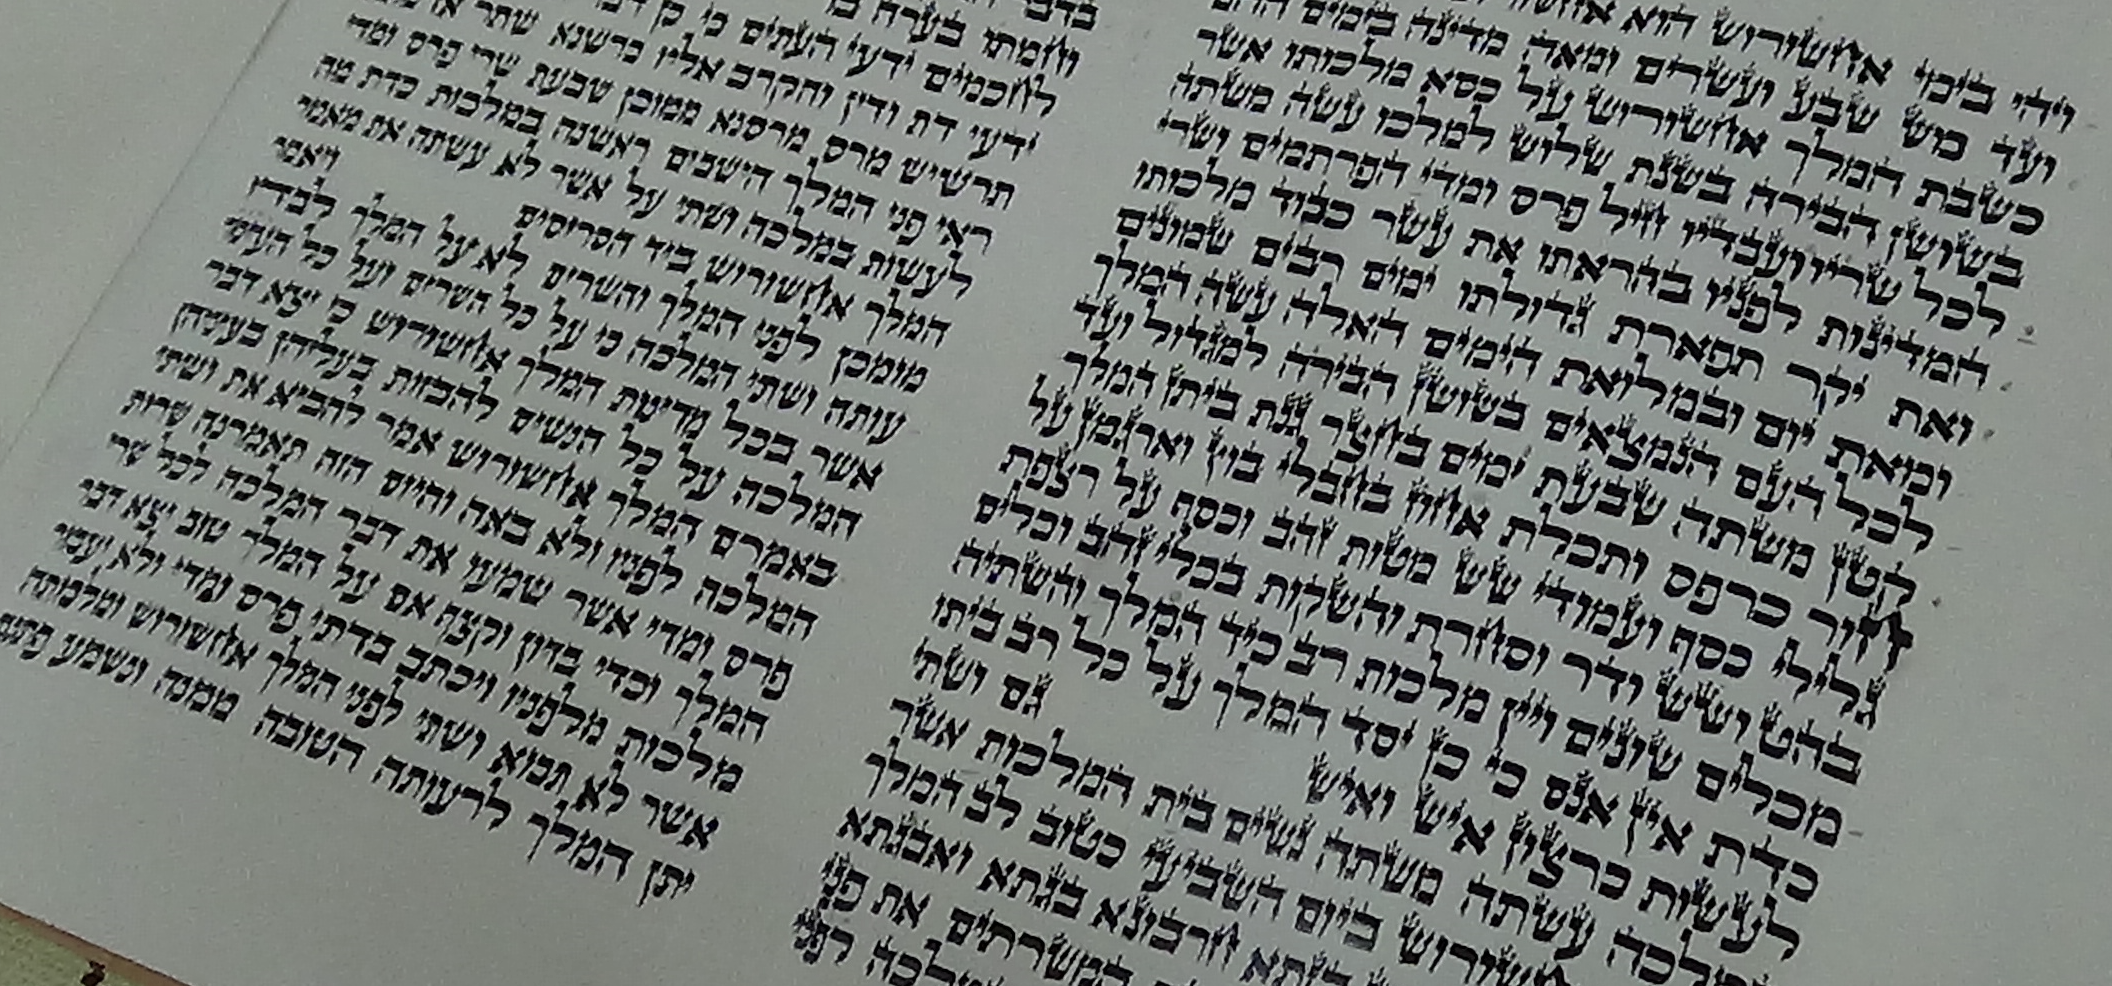 ויהי בימי אחשורוש הוא
ועד כוש שבע ועשרים ומאה מדינה בימים ההם
כשבת המלך אחשורוש על כסא מלכותו אשר
בשושן הבירה בשנת שלוש למלכו עשה משתה
לכל שריו ועבדיו חיל פרס ומדי הפרתמים ושרי
המדינות לפניו בהראתו את עשר כבוד מלכותו
ואת יקר תפארת גדולתו ימים רבים שמונים
ומאת יום ובמלואת הימים האלה עשה המלך
לכל העם הנמצאים בשושן הבירה למגדול ועד
קטן משתה שבעת ימים בחצר גנת ביתן המלך
חור כרפס ותכלת אחוז בחבלי בוץ וארגמן על
גלילי כסף ועמודי שש מטות זהב וכסף על רצפת
בהט ושש ודר וסחרת והשקות בכלי זהב וכלים
מכלים שונים ויין מלכות רב כיד המלך והשתיה
כדת אין אנס כי כן יסד המלך על כל רב ביתו
לעשות כרצון איש ואיש גם ושתי
המלכה עשתה משתה נשים בית המלכות אשר
אחשורוש ביום השביעי כטוב לב המלך
חרבונא בגתא ואבגתא
המשרתים את פני
המלכה לפני
בדבר
וחמתו בערה בו
לחכמים ידעי העתים כי כן
ידעי דת ודין והקרב אליו כרשנא שתר
תרשיש מרס מרסנא ממוכן שבעת שרי פרס ומדי
ראי פני המלך הישבים ראשנה במלכות כדת מה
לעשות במלכה ושתי על אשר לא עשתה את מאמר
המלך אחשורוש ביד הסריסים ויאמר
מומכן לפני המלך והשרים לא על המלך לבדו
עותה ושתי המלכה כי על כל השרים ועל כל העמים
אשר בכל מדינות המלך אחשורוש כי יצא דבר
המלכה על כל הנשים להבזות בעליהן בעיניהן
באמרם המלך אחשורוש אמר להביא את ושתי
המלכה לפניו ולא באה והיום הזה תאמרנה שרות
פרס ומדי אשר שמעו את דבר המלכה לכל שרי
המלך וכדי בזיון וקצף אם על המלך טוב יצא דבר
מלכות מלפניו ויכתב בדתי פרס ומדי ולא יעבור
אשר לא תבוא ושתי לפני המלך אחשורוש ומלכותה
יתן המלך לרעותה הטובה ממנה ונשמע פתגם